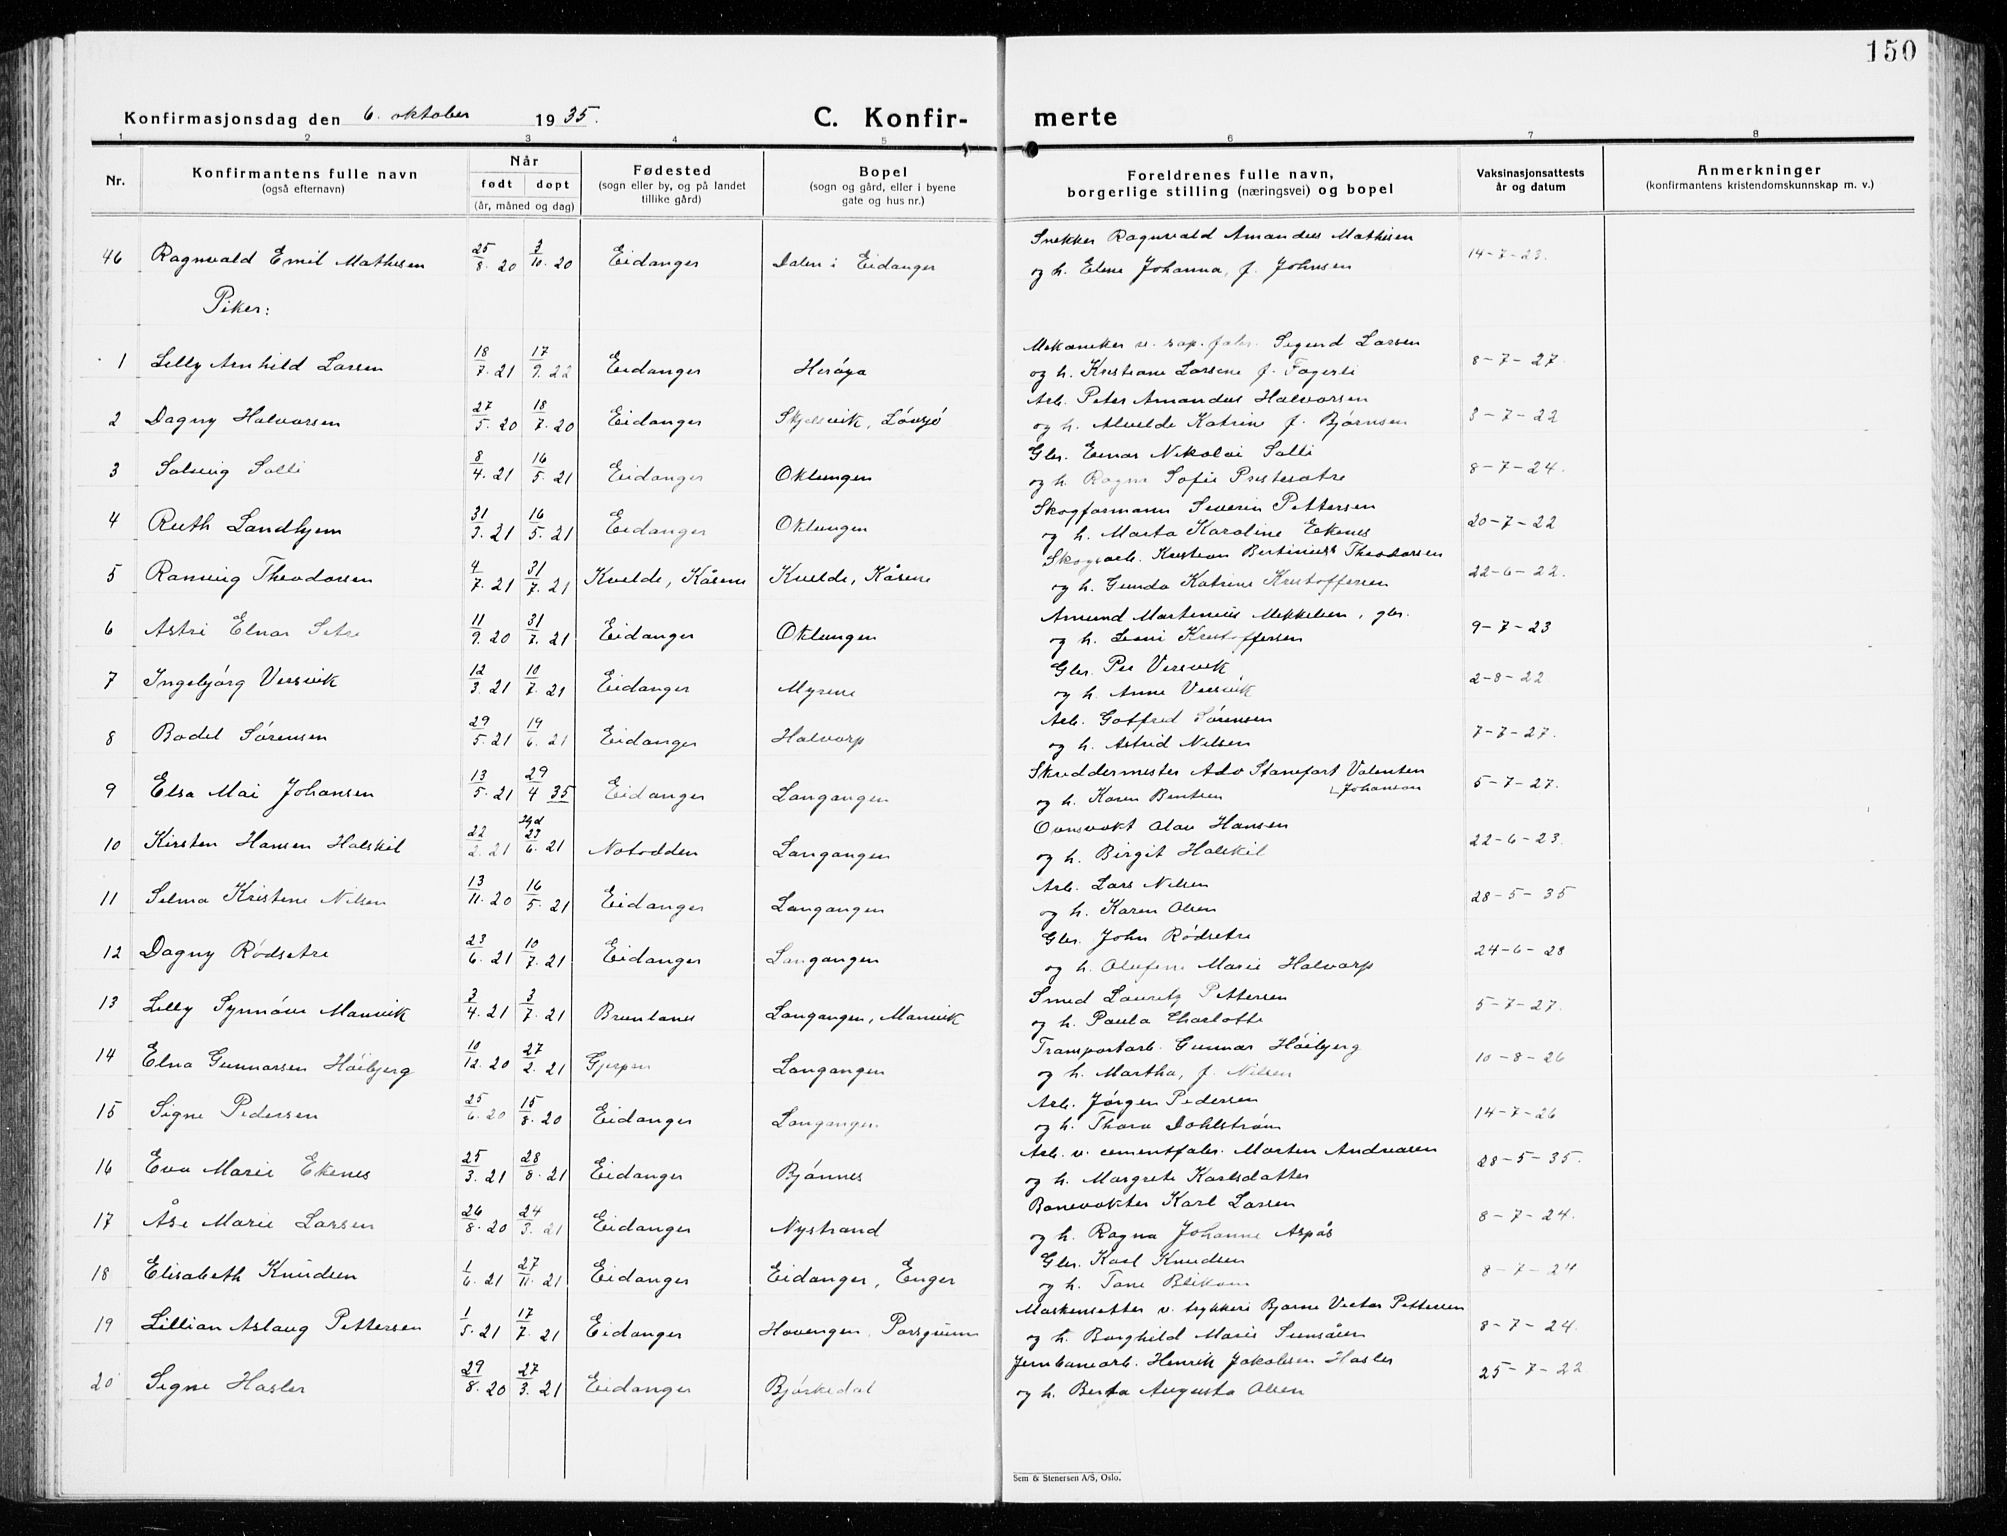 150
Konfirmasjonsdag den 6. oktober 1935. C. Konfir- merte
1 2 3 4 5 6 7 8
Nr. Konfirmantens fulle navn (også efternavn) Når født døpt (år, måned og dag) Fødested (sogn eller by, og på landet tillike gård) Bopel (sogn og gård, eller i byene gate og hus nr.) Foreldrenes fulle navn, borgerlige stilling (næringsvei) og bopel Vaksinasjonsattests år og datum Anmerkninger (konfirmantens kristendomskunnskap m. v.)
46 Ragnvald Emil Mathisen 25/8. 20 3/10. 20 Eidanger Dalen i Eidanger Snekker Ragnvald Amandus Mathisen 14-7-23.
og h. Elene Johanna, f. Johnsen
Piker:
1 Lilly Arnhild Larsen 18/7. 21 17/9. 22 Eidanger Herøya Mekaniker v. sap. fabr. Sigurd Larsen 8-7-27.
og h. Kristiane Larsene f. Fagerli
2 Dagny Halvorsen 27/5. 20 18/7. 20 Eidanger Skjelsvik, Løvsjø Arb. Peter Amandus Halvorsen 3-7-22
og h. Alvilde Katrine f. Bjørnsen
3 Solveig Solli 8/4. 21 16/5. 21 Eidanger Oklungen Gbr. Einar Nikolai Solli 8-7-24.
og h. Ragna Sofie Prestesætre
4 Ruth Landhjem 31/3. 21 16/5. 21 Eidanger Oklungen Skogformann Severin Pettersen 20-7-22
og h. Marta Karoline Ekenes
5 Ranveig Theodorsen 4/7. 21 31/7. 21 Kvelde, Kårene Kvelde, Kårene Skogsarb. Kristian Bertinius Theodorsen 22-6-22.
og h. Gunda Katrine Kristoffersen
6 Astri Elnar Setre 11/9. 20 31/7. 21 Eidanger Oklungen Amund Martinius Mikkelsen, gbr. 9-7-23
og h. Jenni Kristoffersen
7 Ingebjørg Versvik 12/3. 21 10/7. 21 Eidanger Myrene Gbr. Per Versvik 2-8-22
og h. Anne Versvik
8 Bodil Sørensen 29/5. 21 19/6. 21 Eidanger Halvarp Arb. Gotfred Sørensen 7-7-27.
og h. Astrid Nilsen
9 Elsa Mai Johansen 13/5. 21 29/4 35 Eidanger Langangen Skreddermester Adv Stanefart Valentin 5-7-27.
og h. Karen Bentsen Johanson
10 Kirsten Hansen Halskil 22/2. 21 Hjd 23/6. 21 Notodden Langangen Ovnsvakt Olav Hansen 22-6-23.
og h. Birgit Halskil
11 Selma Kristine Nilsen 13/11. 20 16/5. 21 Eidanger Langangen Arb. Lars Nilsen 28-5-35
og h. Karen Olsen
12 Dagny Rødsetre 23/6. 21 10/7. 21 Eidanger Langangen Gbr. John Rødsetre 24-6-28
og h. Olufine Marie Halvarp
13 Lilly Synnøve Mannvik 3/4. 21 3/7. 21 Brunlanes Langangen, Mannvik Smed Lauritz Pettersen 5-7-27.
og h. Paula Charlotte
14 Elna Gunnarsen Høibjerg 10/12. 20 27/2. 21 Gjerpen Langangen Transportarb. Gunnar Høibjerg 10-8-26
og h. Martha, f. Nilsen
15 Signe Pedersen 25/6. 20 15/8. 20 Eidanger Langangen Arb. Jørgen Pedersen 14-7-26
og h. Thora Dahlstrøm
16 Eva Marie Ekenes 25/3. 21 28/8. 21 Eidanger Bjønnes Arb. v. cementfabr. Morten Andreasen 28-5-35.
og h. Margrete Karlsdatter
17 Åse Marie Larsen 26/8. 20 24/3. 21 Eidanger Nystrand Banevokter Karl Larsen 8-7-24.
og h. Ragna Johanne Aspås
18 Elisabeth Knudsen 1/6. 21 27/11. 21 Eidanger Eidanger, Enger Gbr. Karl Knudsen 8-7-24
og h. Tone Blikom
19 Lillian Aslaug Pettersen 1/5. 21 17/7. 21 Eidanger Hovengen, Porsgrunn Maskinsetter v. trykkeri Bjarne Victor Pettersen 8-7-24.
og h. Borghild Marie
20 Signe Hasler 29/8. 20 27/3. 21 Eidanger Bjørkedal Jernbanearb. Henrik Jakobsen Hasler 25-7-22
og h. Berta Augusta Olsen
Sem & Stenersen A/S, Oslo.